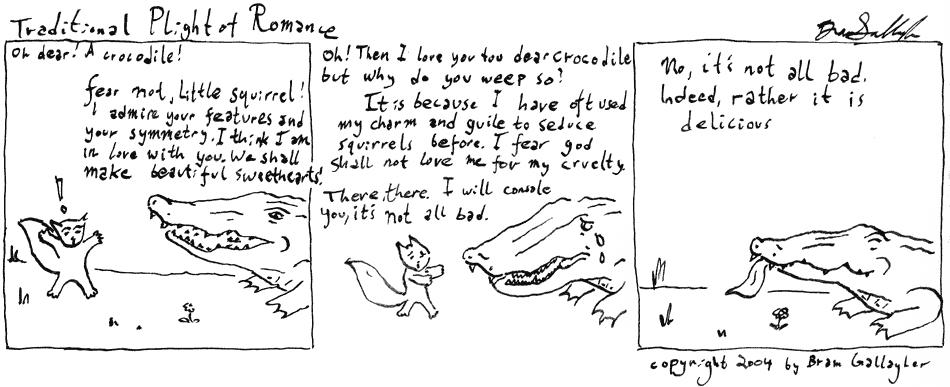 Traditional Plight of Romance
Bram Gallagher
Oh dear! A crocodile!
Fear not, little squirrel!
I admire your features and
your symmetry. I think I am
in love with you. We shall
make beautiful sweethearts!
!
Oh! Then I love you too dear crocodile
but why do you weep so?
It is because I have oft used
my charm and guile to seduce
squirrels before. I fear god
shall not love me for my cruelty.
There, there. I will console
you, it's not all bad.
No, it's not all bad.
Indeed, rather it is
delicious
copyright 2004 by Bram Gallagher